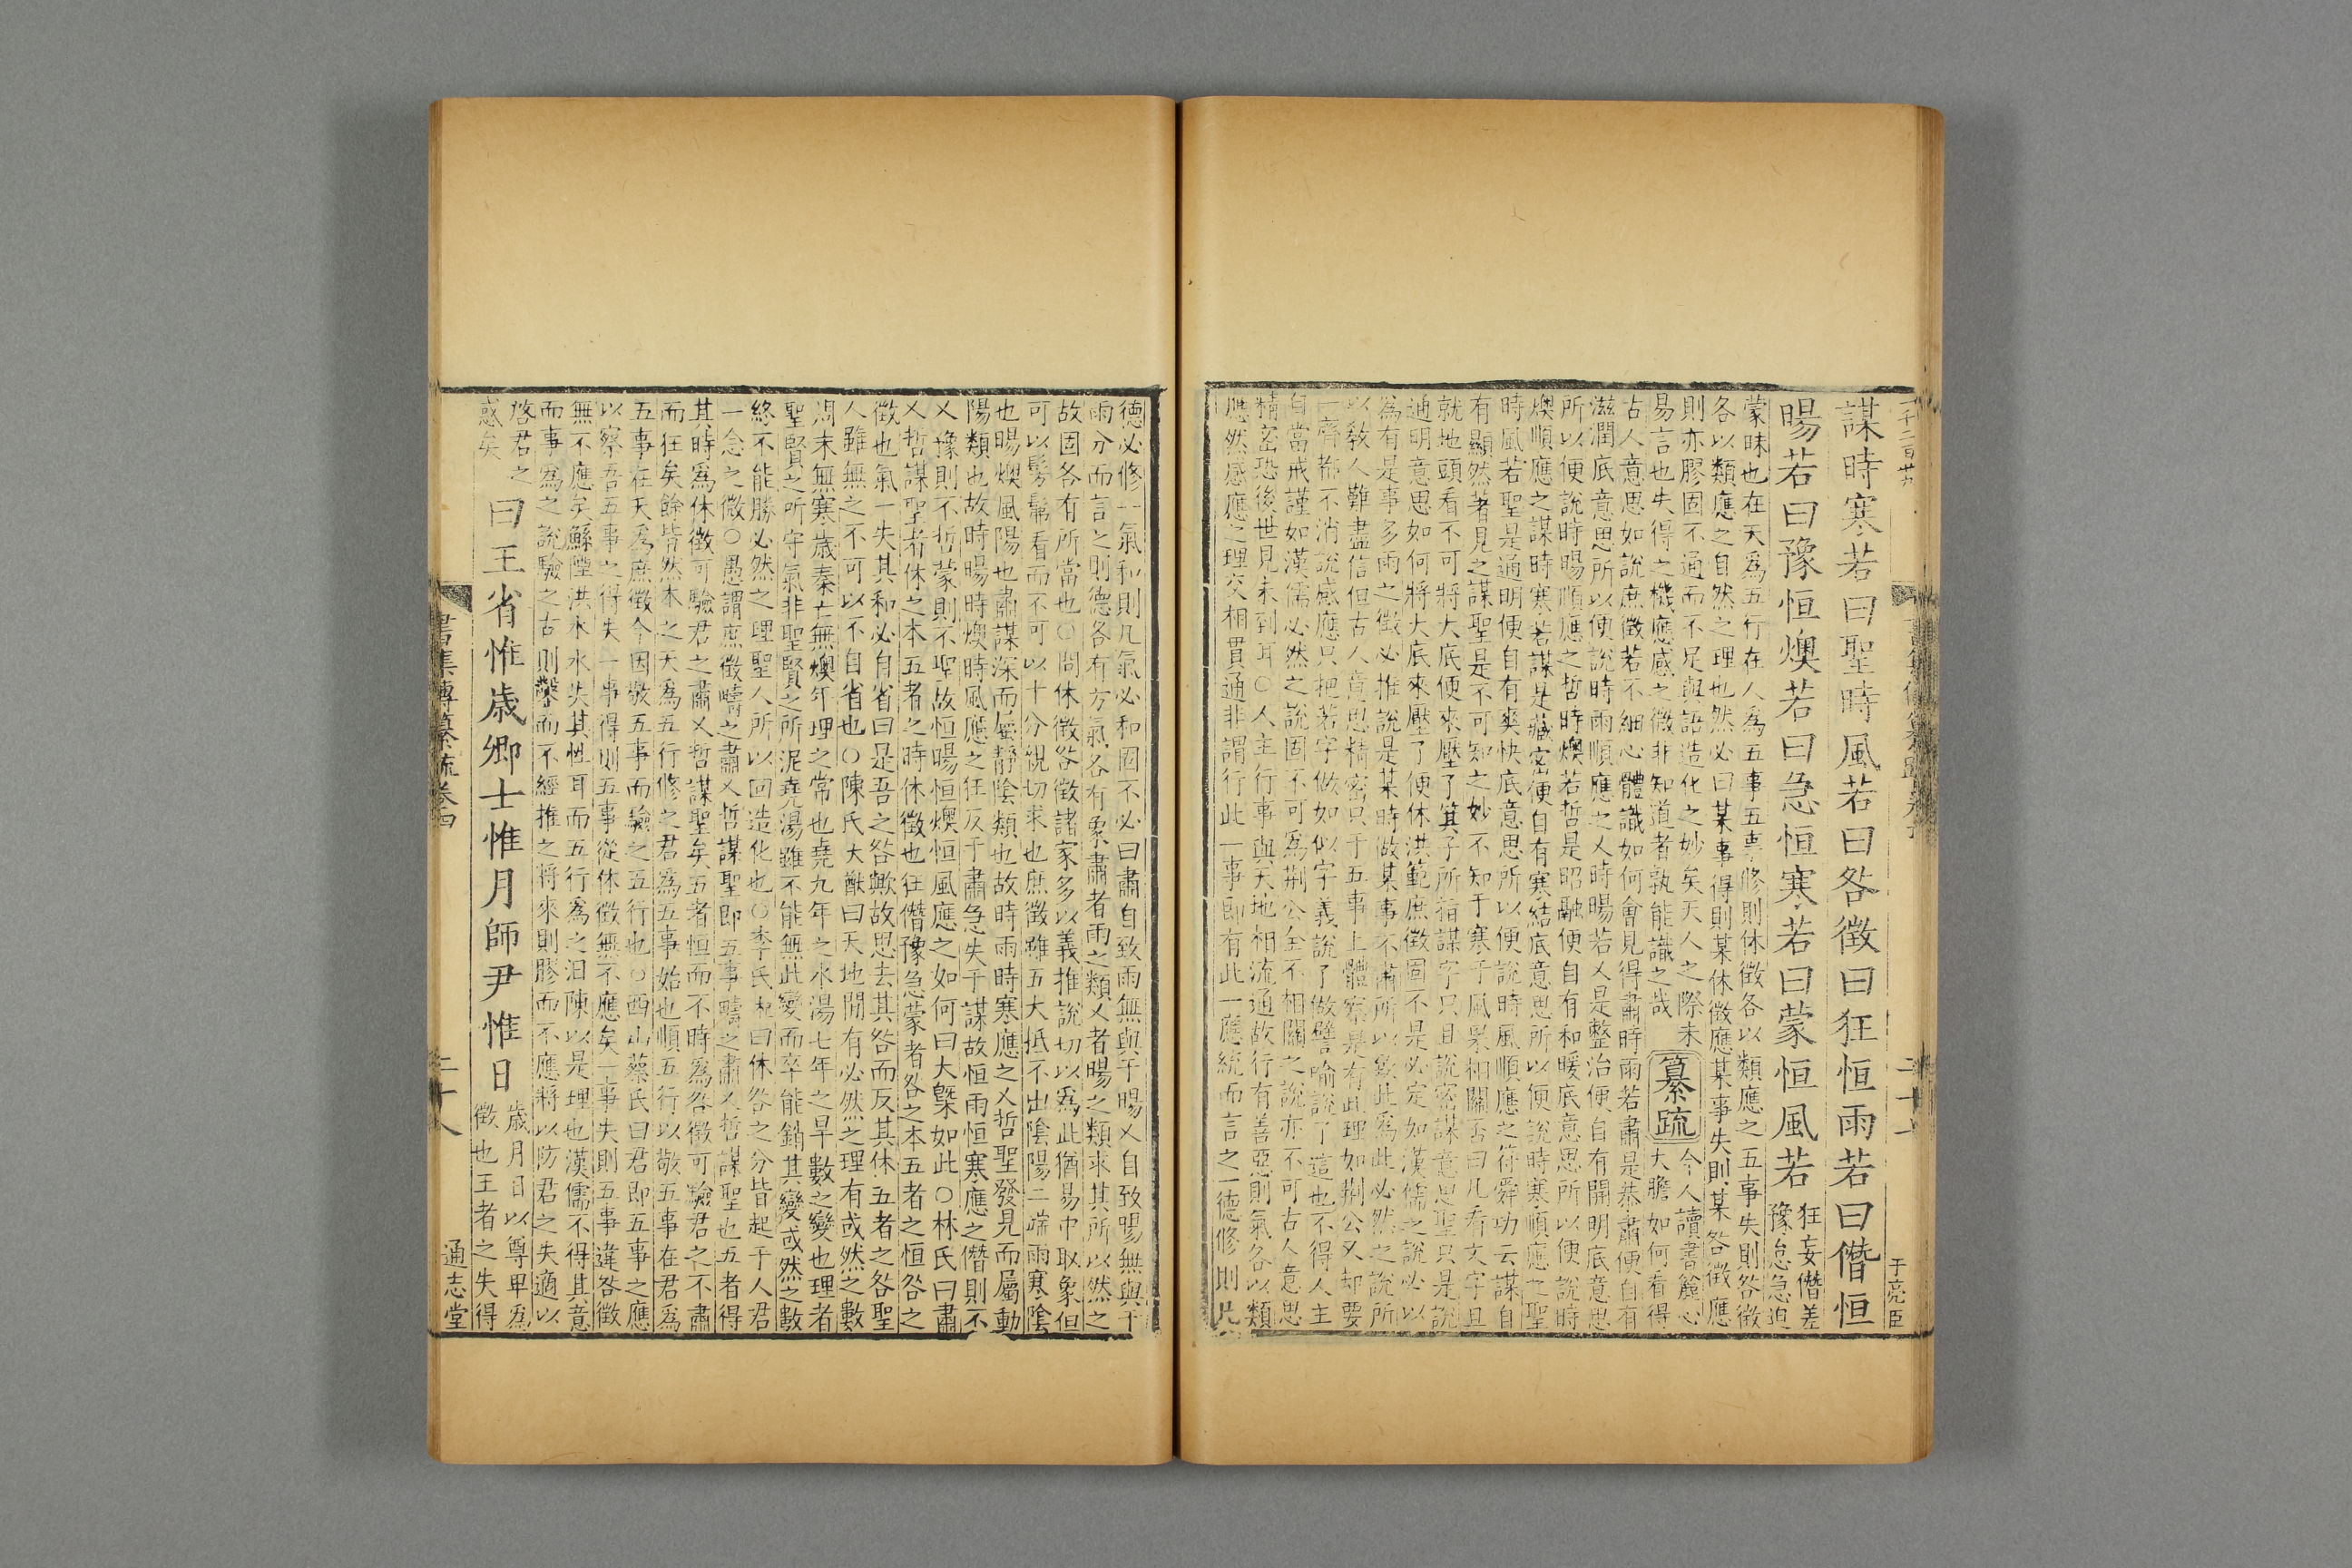 謀時寒若曰聖時風若曰咎徵曰狂恒雨若曰僭恒
暘若曰豫恒燠若曰急恒寒若曰蒙恒風若
狂妄僭差
豫怠急迫
蒙昧也在天爲五行在人爲五事五事修則休徵各以類應之五事失則咎徵
各以類應之自然之理也然必曰某事得則某休徵應某事失則某咎徵應
則亦膠固不通而不足與語造化之妙矣天人之際未
易言也失得之機應感之微非知道者孰能識之哉
纂疏
今人讀書麤心
大膽如何看得
古人意思如說庶徵若不細心體識如何會見得肅時雨若肅是恭肅便自有
滋潤底意思所以便說時雨順應之乂時暘若乂是整治便自有開明底意思
所以便說時暘順應之哲時燠若哲是昭融便自有和暖底意思所以便說時
燠順應之謀時寒若謀是藏密便自有寒結底意思所以便說時寒順應之聖
時風若聖是通明便自有爽快底意思所以便說時風順應之符舜功云謀自
有顯然著見之謀聖是不可知之妙不知于寒于風果相關否曰凡看文字且
就地頭看不可將大底便來壓了箕子所指謀字只且說密謀意思聖只是說
通明意思如何將大底來壓了便休洪範庶徵固不是必定如漢儒之說必以
爲有是事多雨之徵必推說是某時做某事不肅所以致此爲此必然之說所
以敎人難盡信但古人意思精密只于五事上體察是有此理如荆公又却要
一齊都不消說感應只把若字做如似字義說了做譬喻說了這也不得人主
自當戒謹如漢儒必然之說固不可爲荆公全不相關之說亦不可古人意思
精密恐後世見未到耳○人主行事與天地相流通故行有善惡則氣各以類
應然感應之理交相貫通非謂行此一事即有此一應統而言之一德修則凡
德必修一氣和則凡氣必和固不必曰肅自致雨無與于暘乂自致暘無與于
雨分而言之則德各有方氣各有象肅者雨之類乂者暘之類求其所以然之
故固各有所當也○問休徵咎徵諸家多以義推說切以爲此猶易中取象但
可以髣髴看而不可以十分親切求也庶徵雖五大抵不出陰陽二端雨寒陰
也暘燠風陽也肅謀深而屬靜陰類也故時雨時寒應之乂哲聖發見而屬動
陽類也故時暘時燠時風應之狂反于肅急失于謀故恒雨恒寒應之僭則不
乂豫則不哲蒙則不聖故恒暘恒燠恒風應之如何曰大槩如此○林氏曰肅
乂哲謀聖者休之本五者之時休徵也狂僭豫急蒙者咎之本五者之恒咎之
徵也氣一失其和必自省曰是吾之咎歟故思去其咎而反其休五者之咎聖
人雖無之不可以不自省也○陳氏大猷曰天地間有必然之理有或然之數
周末無寒歲秦亡無燠年理之常也堯九年之水湯七年之旱數之變也理者
聖賢之所守氣非聖賢之所泥堯湯雖不能無此變而卒能銷其變或然之數
終不能勝必然之理聖人所以回造化也○李氏杞曰休咎之分皆起于人君
一念之微○愚謂庶徵疇之肅乂哲謀聖即五事疇之肅乂哲謀聖也五者得
其時爲休徵可驗君之肅乂哲謀聖矣五者恒而不時爲咎徵可驗君之不肅
而狂矣餘皆然本之天爲五行修之君爲五事始也順五行以敬五事在君爲
五事在天爲庶徵今因敬五事而驗之五行也○西山蔡氏曰君即五事之應
以察吾五事之得失一事得則五事從休徵無不應矣一事失則五事違咎徵
無不應矣鯀陻洪水水失其性耳而五行爲之汩陳以是理也漢儒不得其意
而事爲之說驗之古則鑿而不經推之將來則膠而不應將以防君之失適以
啓君之
惑矣
曰王省惟歲卿士惟月師尹惟日
歲月日以尊卑爲
徵也王者之失得
書集傳纂疏卷四
二十八
通志堂